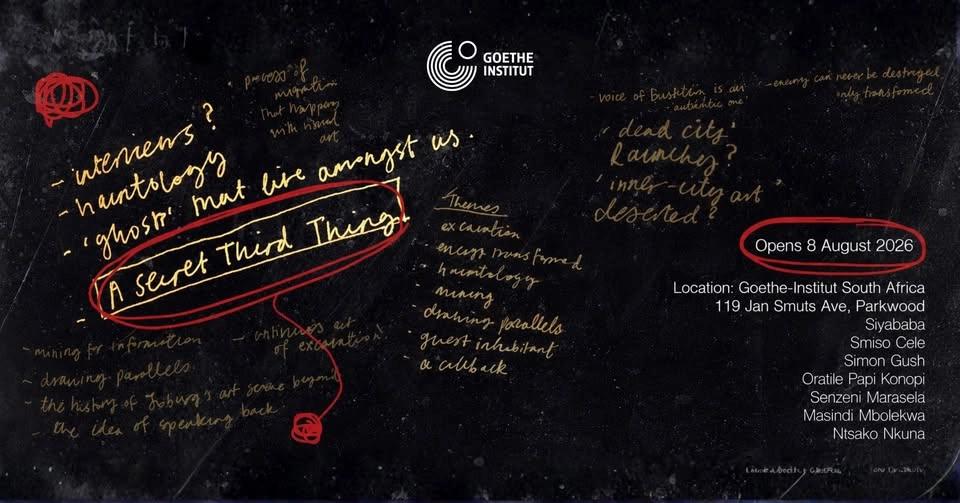 GOETHE
INSTITUT
process of
migration
that happens
with visual
art
- interviews?
- hauntology
- 'ghosts' that live amongst us.
- A Secret Third Thing
- mining for information
- drawing parallels
- the history of Joburg's art scene beyond
- the idea of speaking back
- continuous act
of excavation!
Themes
excavation
- energy transformed
- hauntology
- mining
- drawing parallels
- guest inhabitant
- a callback
- voice of
is an
'authentic one'
- energy can never be destroyed
only transformed
'dead city'
Raunchy?
'inner-city art'
deserted?
Opens 8 August 2026
Location: Goethe-Institut South Africa
119 Jan Smuts Ave, Parkwood
Siyababa
Smiso Cele
Simon Gush
Oratile Papi Konopi
Senzeni Marasela
Masindi Mbolekwa
Ntsako Nkuna